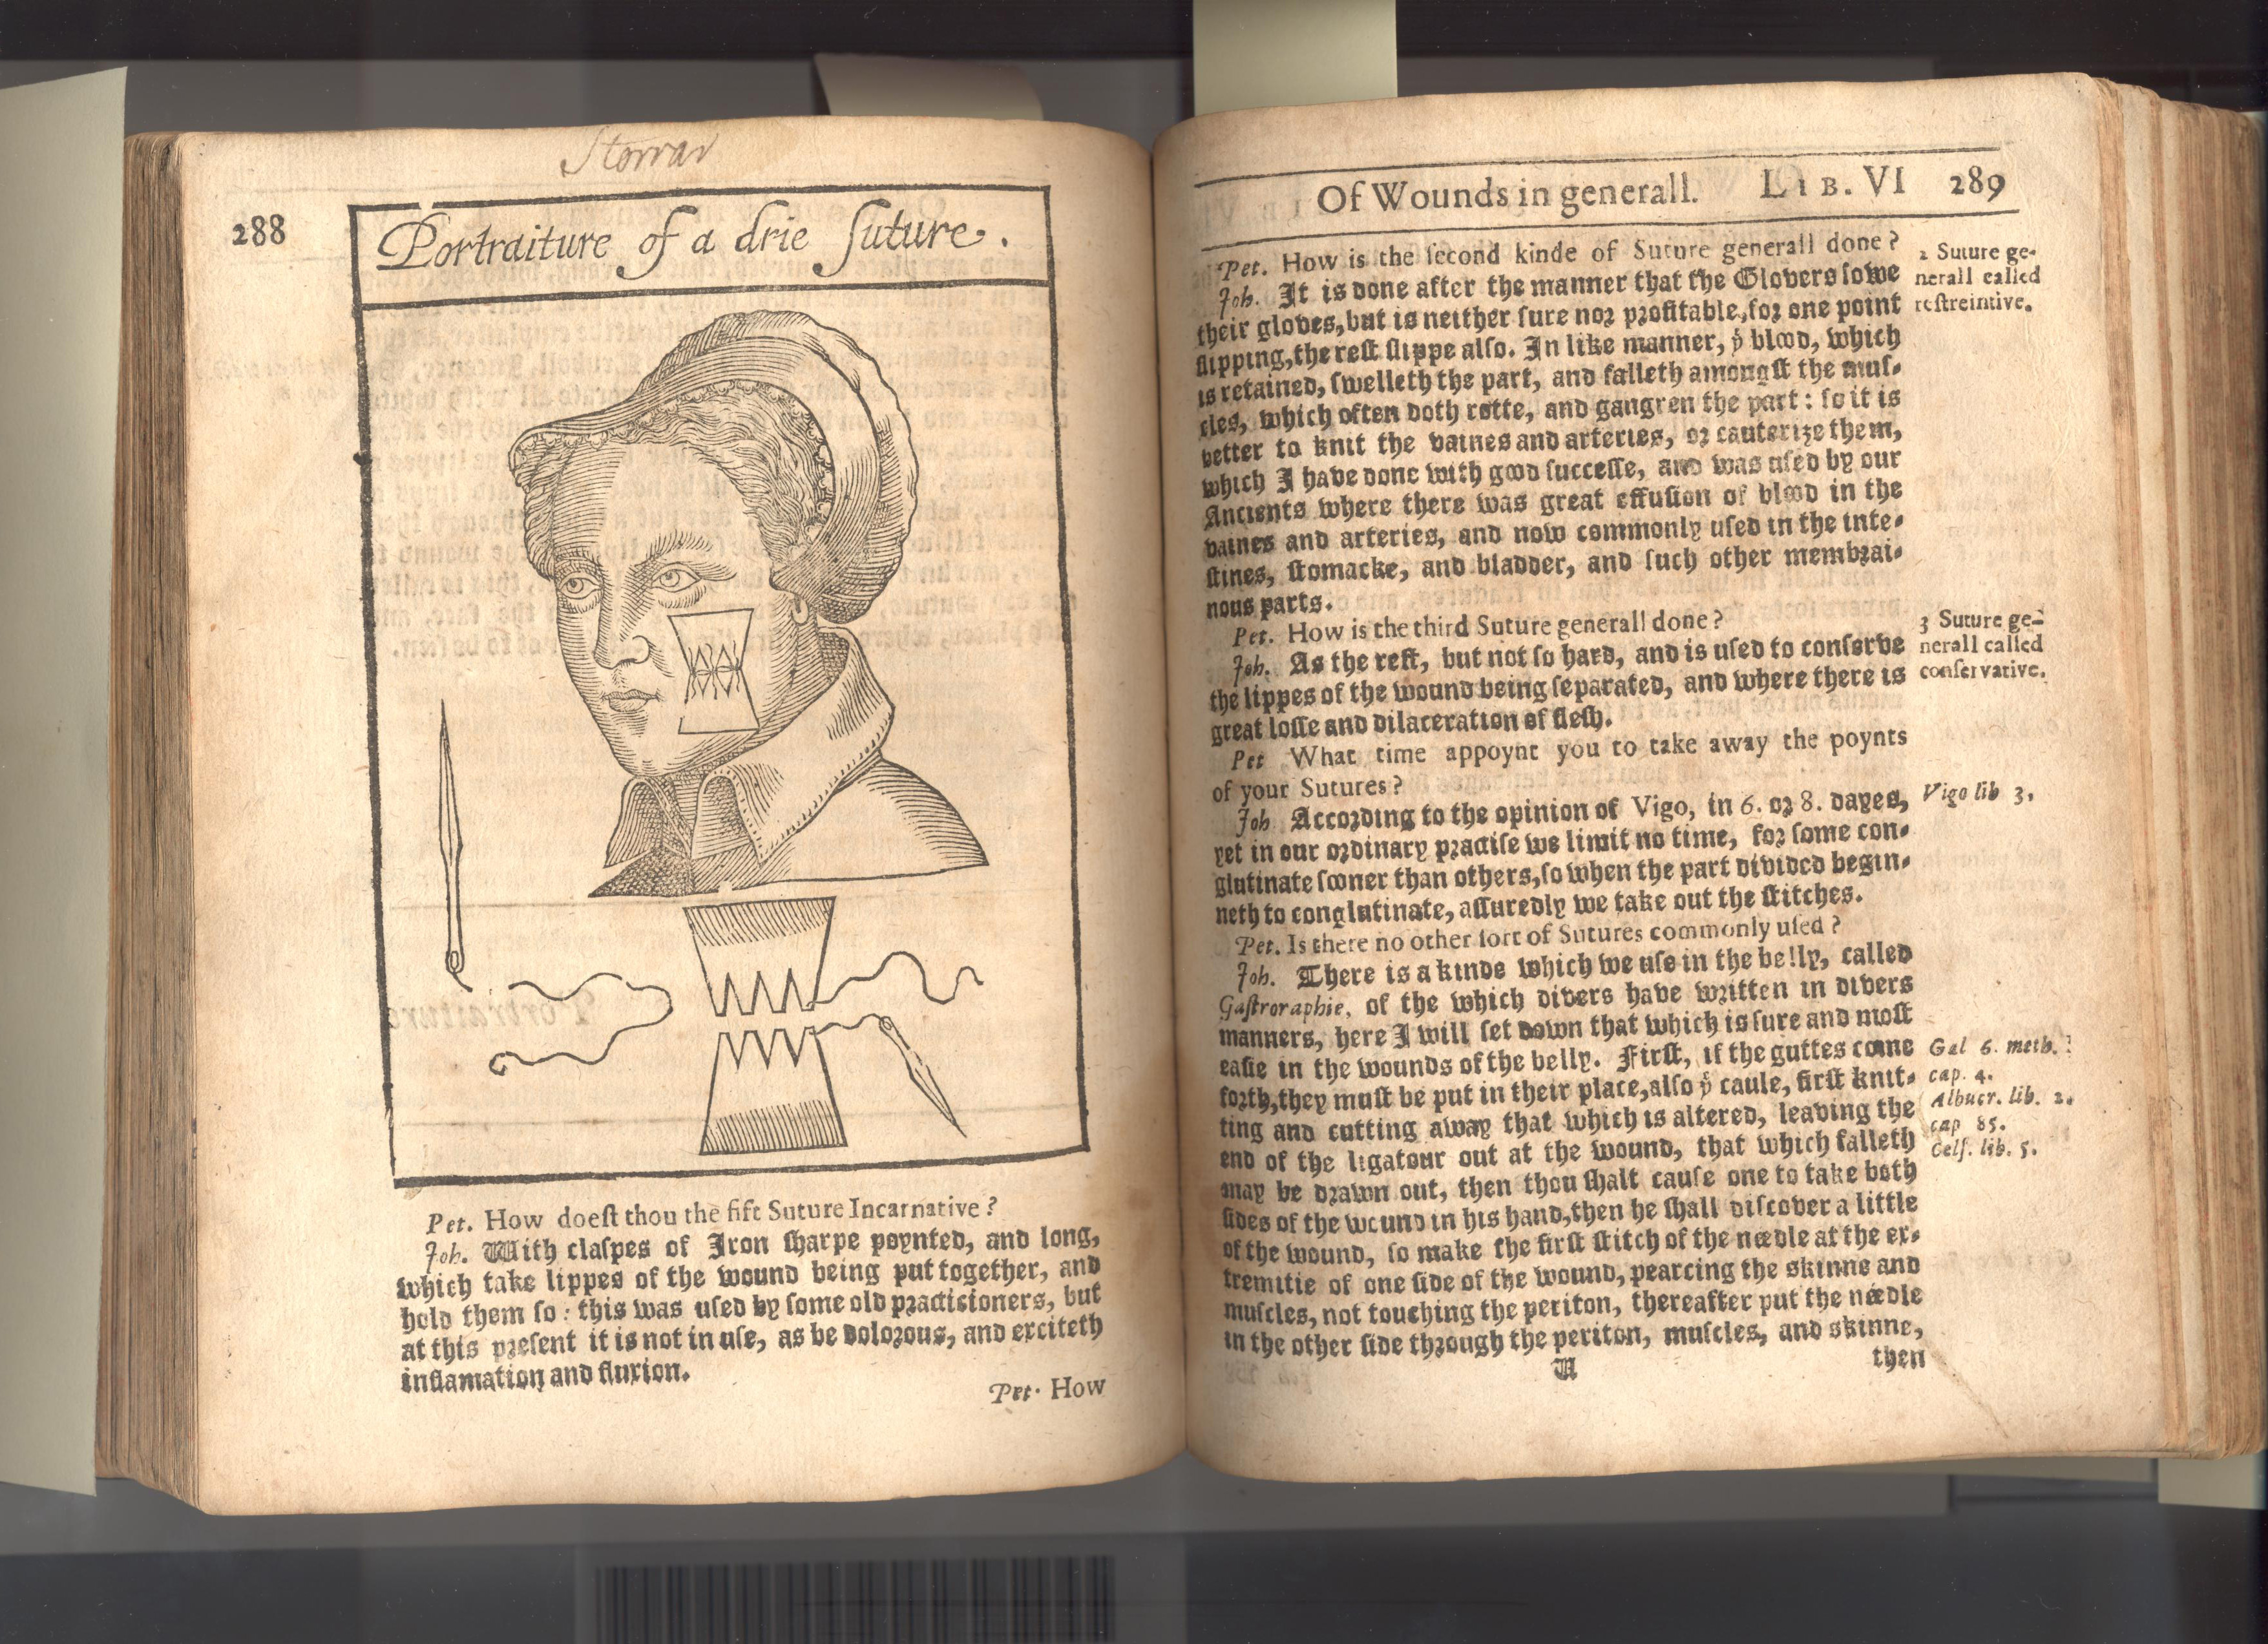 Storrar
288
Portraiture of a drie ſuture.
Pet. How doeſt thou the fift Suture Incarnative?
Joh. With claſpes of Iron ſharpe poynted, and long,
which take lippes of the wound being put together, and
hold them ſo: this was uſed by ſome old practicioners, but
at this preſent it is not in uſe, as be dolorous, and exciteth
inflamation and fluxion.
Pet. How
Of Wounds in generall. LIB. VI 289
Pet. How is the ſecond kinde of Suture generall done?
Joh. It is done after the manner that the Glovers ſowe
their gloves, but is neither ſure nor profitable, for one point
ſlipping, the reſt ſlippe alſo. In like manner, yͤ blood, which
is retained, ſwelleth the part, and falleth amongſt the muſ-
cles, which often doth rotte, and gangren the part: ſo it is
better to knit the vaines and arteries, or cauterize them,
which I have done with good ſucceſſe, and was uſed by our
Ancients where there was great effuſion of blood in the
vaines and arteries, and now commonly uſed in the inte-
ſtines, ſtomacke, and bladder, and ſuch other membrai-
nous parts.
Pet. How is the third Suture generall done?
Joh. As the reſt, but not ſo hard, and is uſed to conſerve
the lippes of the wound being ſeparated, and where there is
great loſſe and dilaceration of fleſh.
Pet What time appoynt you to take away the poynts
of your Sutures?
Joh According to the opinion of Vigo, in 6. or 8. dayes,
yet in our ordinary practiſe we limit no time, for ſome con-
glutinate ſooner than others, ſo when the part divided begin-
neth to conglutinate, aſſuredly we take out the ſtitches.
Pet. Is there no other ſort of Sutures commonly uſed?
Joh. There is a kinde which we uſe in the belly, called
Gaſtroraphie, of the which divers have written in divers
manners, here I will ſet down that which is ſure and moſt
eaſie in the wounds of the belly. Firſt, if the guttes come
forth, they muſt be put in their place, alſo yͤ caule, firſt knit-
ting and cutting away that which is altered, leaving the
end of the ligatour out at the wound, that which falleth
may be drawn out, then thou ſhalt cauſe one to take both
ſides of the wound in his hand, then he ſhall diſcover a little
of the wound, ſo make the firſt ſtitch of the needle at the ex-
tremitie of one ſide of the wound, pearcing the skinne and
muſcles, not touching the periton, thereafter put the needle
in the other ſide through the periton, muſcles, and skinne,
U then
2 Suture ge-
nerall called
reſtreintive.
3 Suture ge-
nerall called
conſervative.
Vigo lib 3.
Gal 6. meth.
cap. 4.
Albucr. lib. 2.
cap 85.
Celſ. lib. 5.